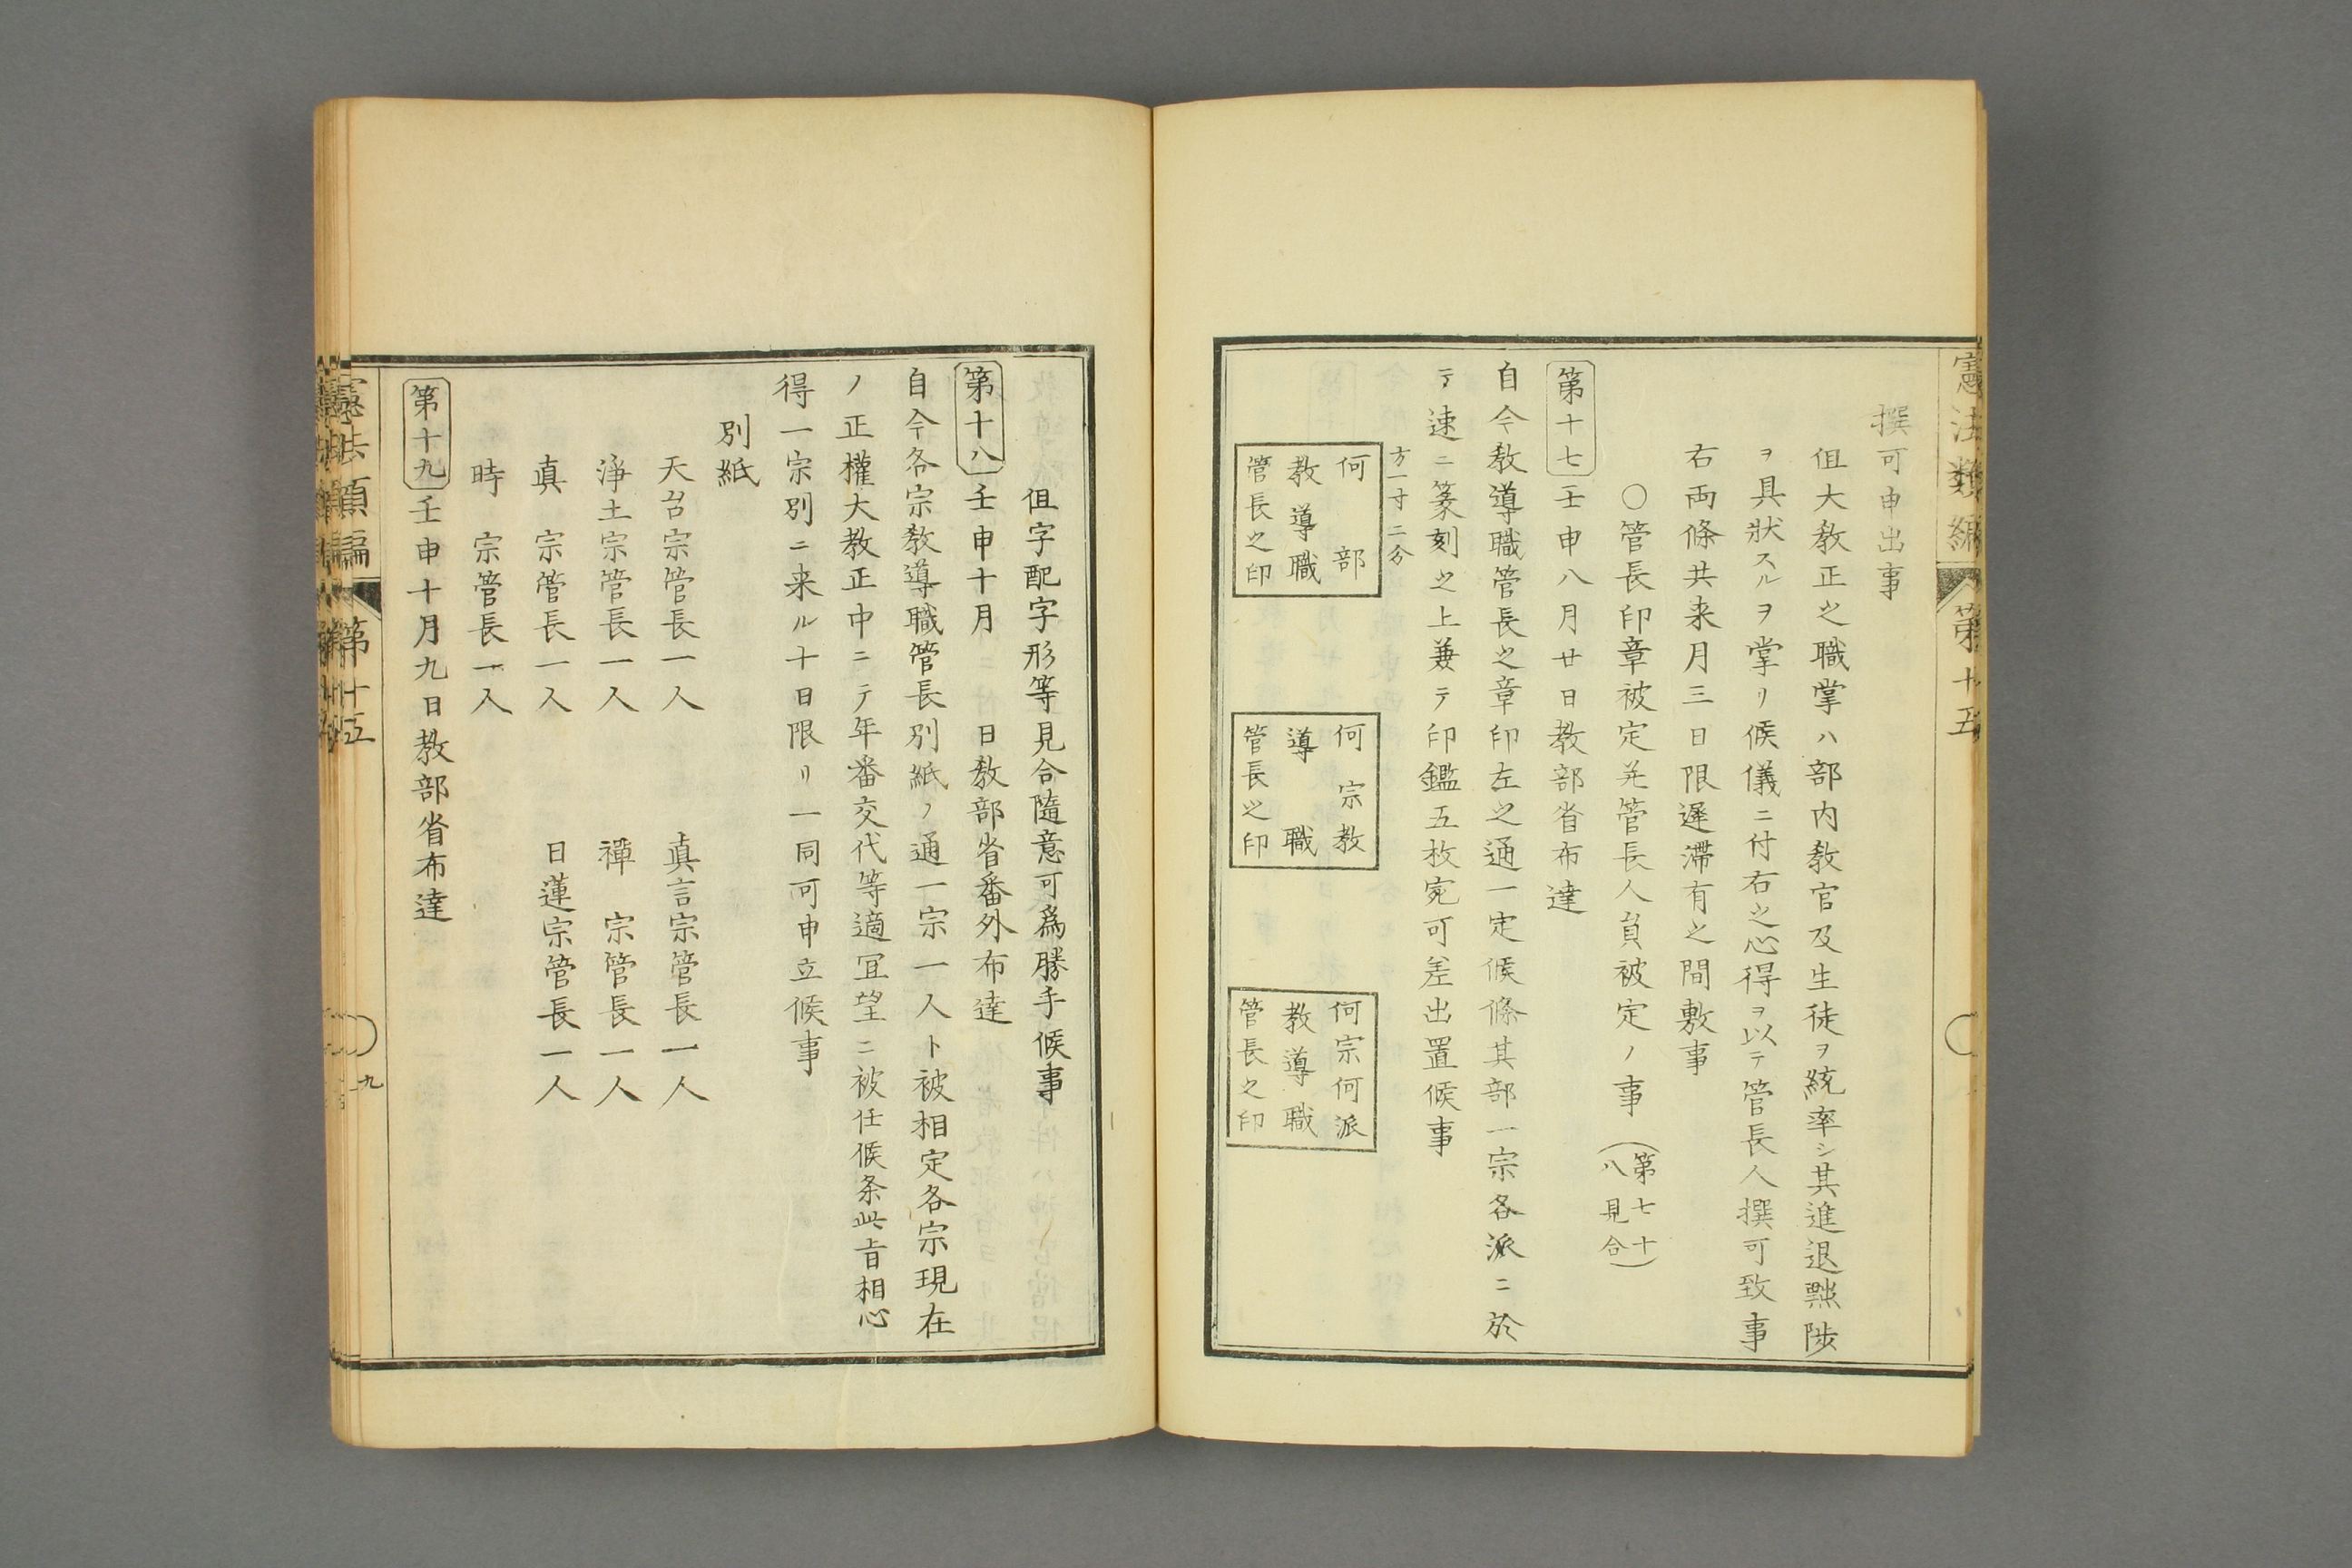 憲法類編
第十五
撰可申出事
伹大教正之職掌ハ部内教官及生徒ヲ統率シ其進退黜陟
ヲ具狀スルヲ掌リ候儀ニ付右之心得ヲ以テ管長人撰可致事
右両條共来月三日限遲滯有之間敷事
〇管長印章被定并管長人員被定ノ事
(第七十
八見合)
第十七
壬申八月廿日教部省布達
自今教導職管長之章印左之通一定候條其部一宗各派ニ於
テ速ニ篆刻之上兼テ印鑑五枚宛可差出置候事
方一寸二分
何部
教導職
管長之印
何宗教
導職
管長之印
何宗何派
教導職
管長之印
伹字配字形等見合隨意可爲勝手候事
第十八
壬申十月 日教部省番外布達
自今各宗教導職管長別紙ノ通一宗一人ト被相定各宗現在
ノ正權大教正中ニテ年番交代等適冝望ニ被任候条此旨相心
得一宗別ニ来ル十日限リ一同可申立候事
別紙
天台宗管長一人 真言宗管長一人
浄土宗管長一人 禪 宗管長一人
真 宗管長一人 日蓮宗管長一人
時 宗管長一人
第十九
壬申十月九日教部省布達
憲法類編
第十五
九